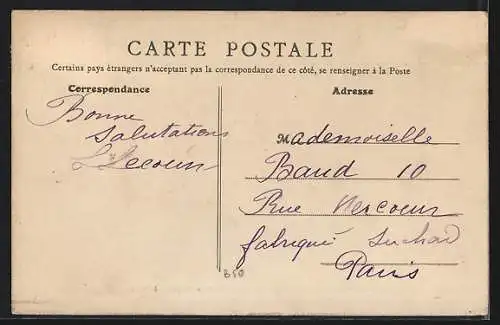 CARTE POSTALE
Certains pays étrangers n'acceptant pas la correspondance de ce côté, se renseigner à la Poste
Correspondance
Adresse
Bonne
Salutations
Mademoiselle
Baud 10
Rue Mercoeur
fabrique Suchard
Paris